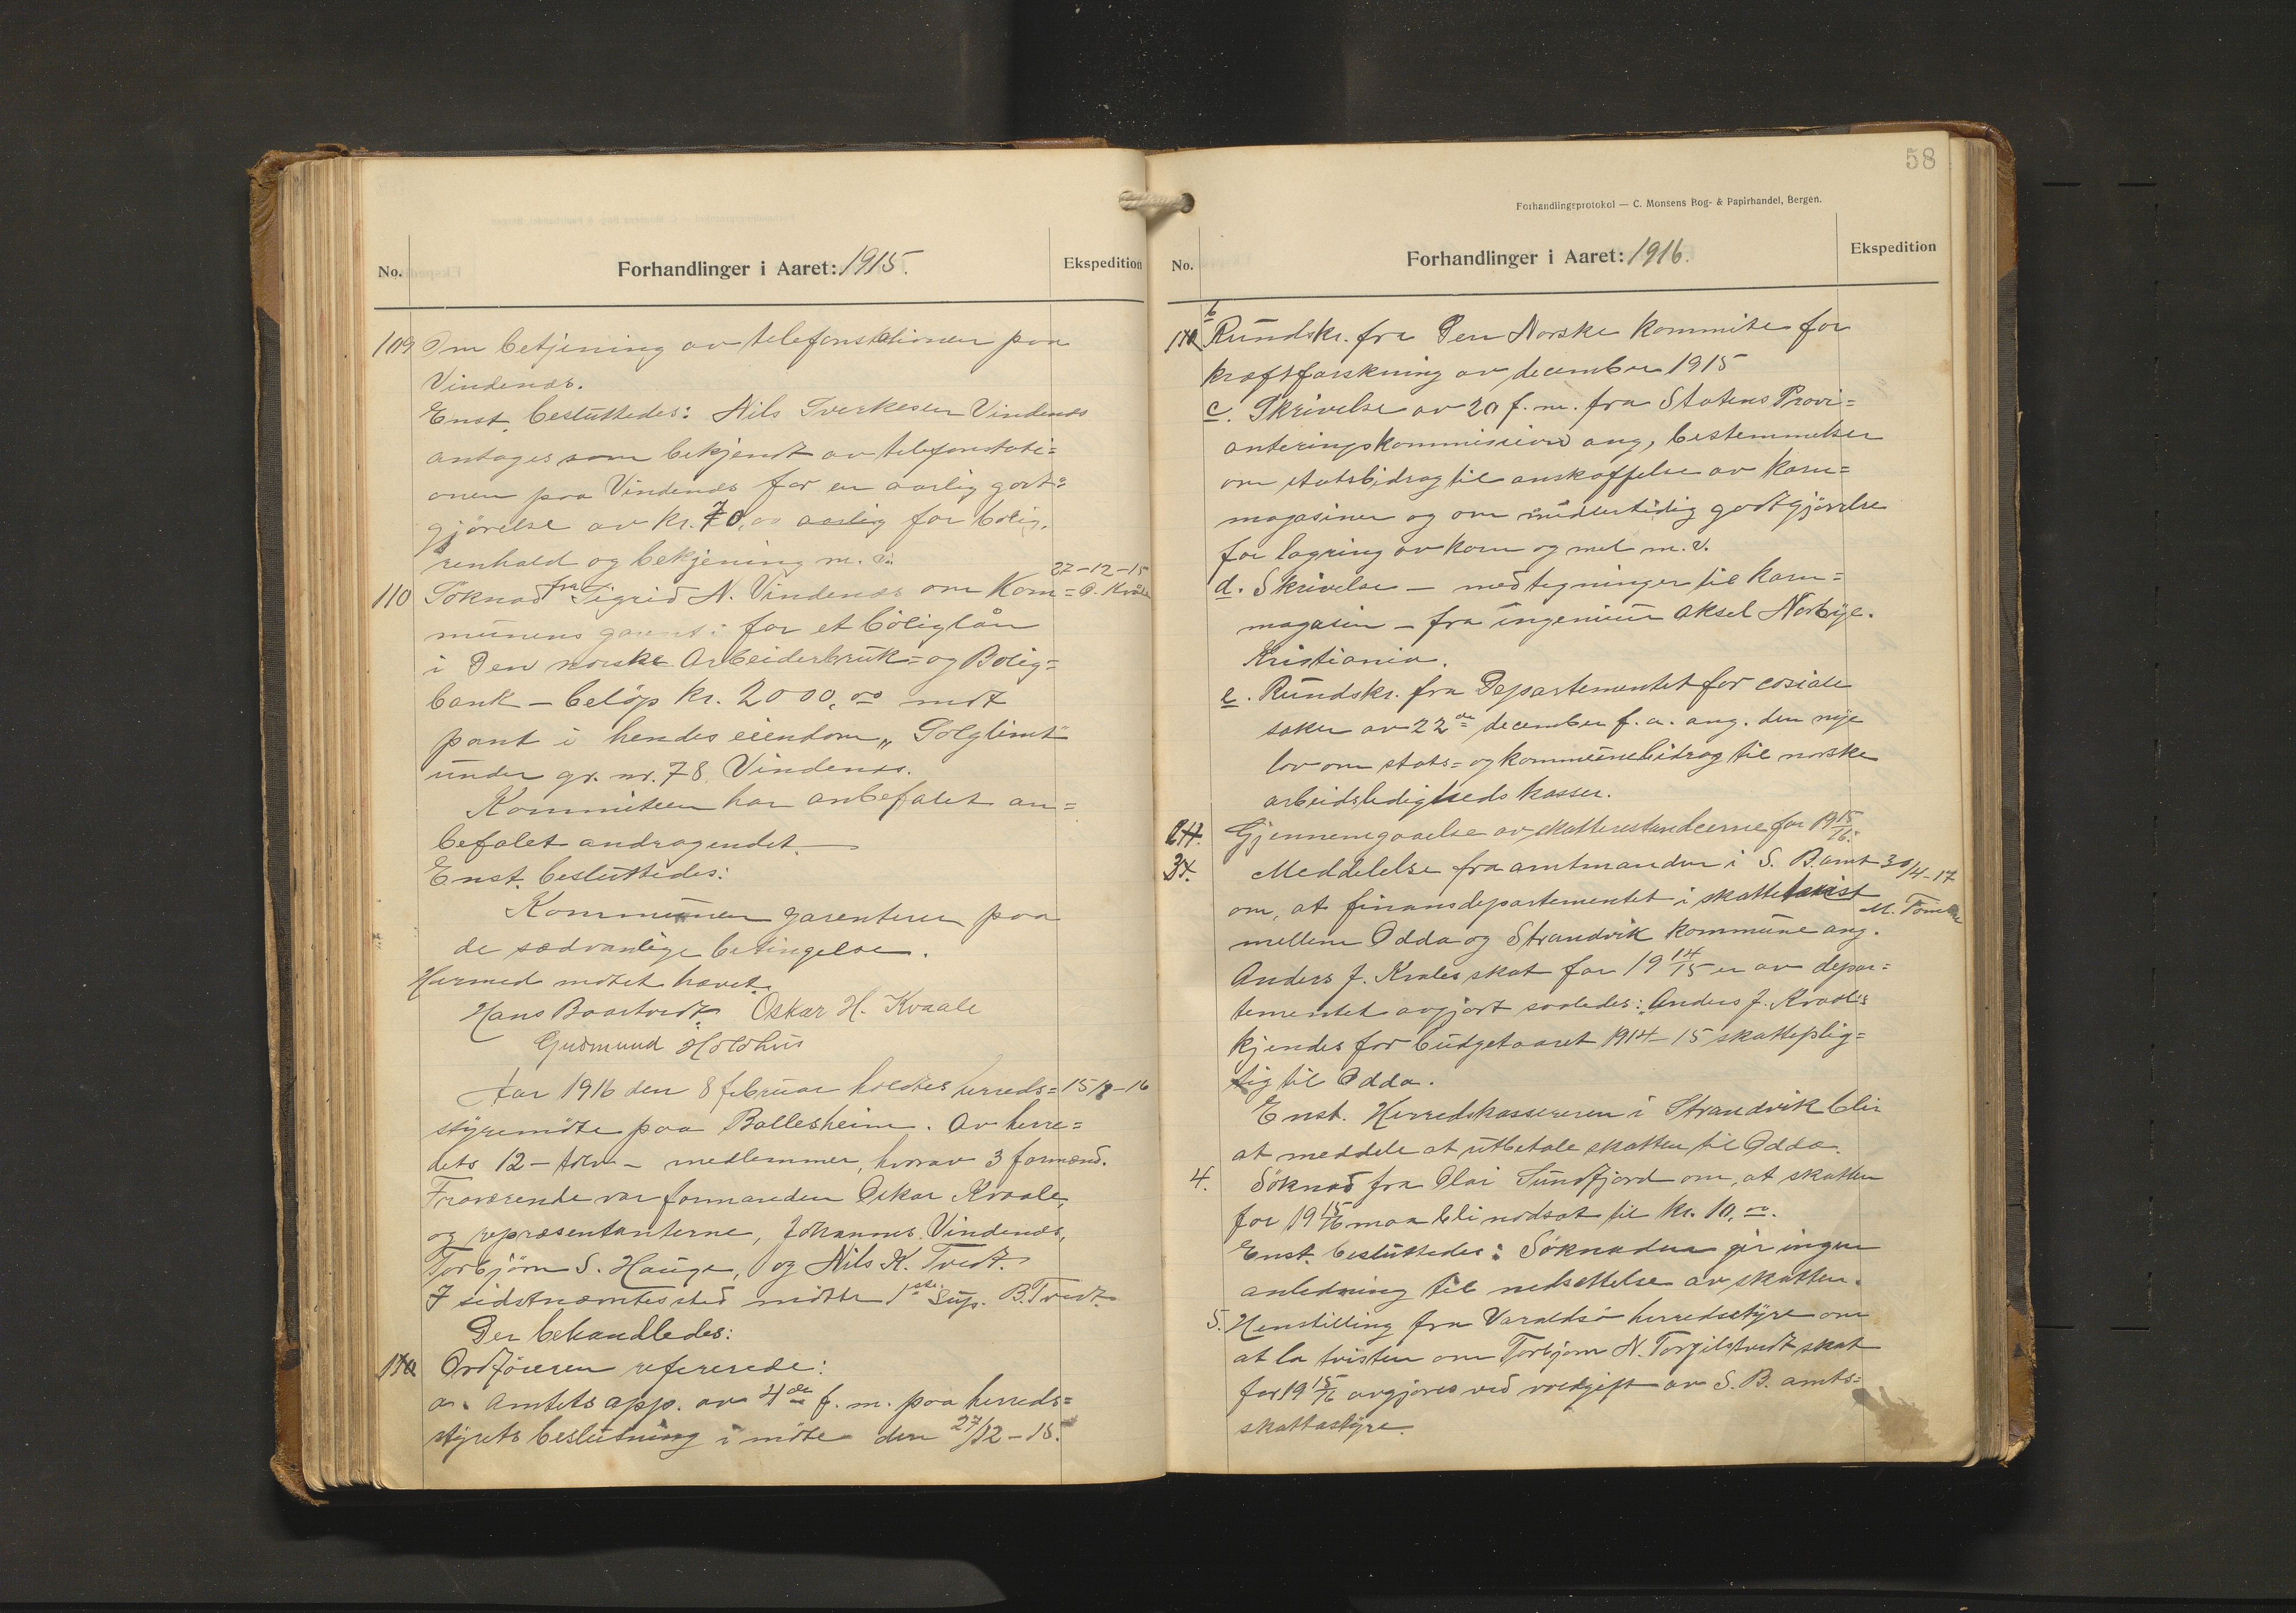 No.
Forhandlinger i Aaret: 1915.
Ekspedition
109 Om betjening av telefonstationen paa
Vindenes.
Enst. besluttedes: Nils Sverkesen Vindenes
antages som bekjendt av telefonstati=
onen paa Vindenes for en aarlig godt=
gjörelse av kr. 70,00 aarlig for bolig,
renhold og bekjening m. v.
27-12-15
110 Söknad fra Sigrid N. Vindenes om Kom= O. Kvåle
munens garanti for et boliglån
i Den norske Arbeiderbruk= og Bolig=
bank – belöp kr. 2000,00 mot
pant i hendes eiendom „Solglimt"
under gr. nr. 78. Vindenes.
Kommiteen har anbefalet an=
befalet andragendet.
Enst. besluttedes:
Kommunen garenterer paa
de sedvanlige betingelse.
Hermed mötet hævet.
Hans Baartvedt Oskar H. Kvaale
Gudmund Holdhus
Aar 1916 den 8 februar holdtes herreds= 15/2-16
styremöte paa Ballesheim. Av herre=
dets 12 – tolv – medlemmer, hvorav 3 formend.
Fraværende var formanden Oskar Kvaale,
og representanterne, Johannes Vindenes,
Torbjörn S. Hauge, og Nils K. Tvedt.
I sidstnævntes sted mötte 1ste sup. B. Tvedt.
Der behandledes:
1a Ordföreren refererede:
a. Amtets app. av 4de f. m. paa herreds=
styrets beslutning i möte den 27/12-15.
58
Forhandlingsprotokol — C. Monsens Bog- & Papirhandel, Bergen.
No.
Forhandlinger i Aaret: 1916.
Ekspedition
b
Rundskr. fra Den Norske Kommite for
kræftforskning av december 1915
c. Skrivelse av 20 f. m. fra Statens Provi=
anteringskommission ang, bestemmelser
om statsbidrag til anskaffelse av korn=
magasiner og om midlertidig godtgjörelse
for lagring av korn og mel m. v.
d. Skrivelse – med tegninger til korn=
magasin – fra ingeniür Aksel Norbye.
Kristiania.
e. Rundskr. fra Departementet for cosiale
saker av 22de december f. a. ang. den nye
lov om stats= og kommunebidrag til norske
arbeidsledigheds kasser.
2. Gjennemgaaelse av skatterestancerne for 19 15/16.
3. Meddelelse fra amtmanden i S. B. amt 30/4-17
om, at finansdepartementet i skattetvist
mellem Odda og Strandvik kommune ang.
Anders J. Kvales skat for 19 14/15 er av depar=
tementet avgjort saaledes: „Anders J. Kvaales
kjendes for budgetaaret 1914-15 skatteplig=
tig til Odda.
Enst. Herredskassereren i Strandvik blir
at meddele at utbetale skatten til Odda.
4. Söknad fra Olai Sundfjord om, at skatten
for 19 15/16 maa bli nedsat til kr. 10,00.
Enst. besluttedes: Söknaden gir ingen
anledning til nedsettelse av skatten.
5. Henstilling fra Varaldsö herredsstyre om
at la tvisten om Torbjörn N. Torgilstvedt skat
for 19 15/16 avgjöres ved voldgift av S. B. amts=
skattestyre.